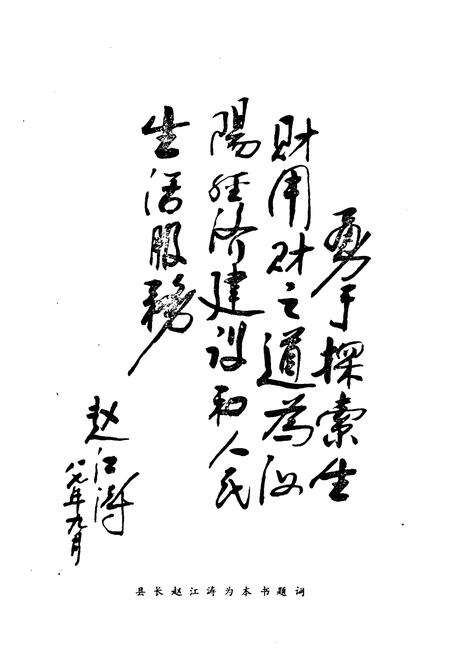 勇于探索生
财用财之道為汝
陽经济建设和人民
生活服務
赵江涛
八七年九月
县长赵江涛为本书题词